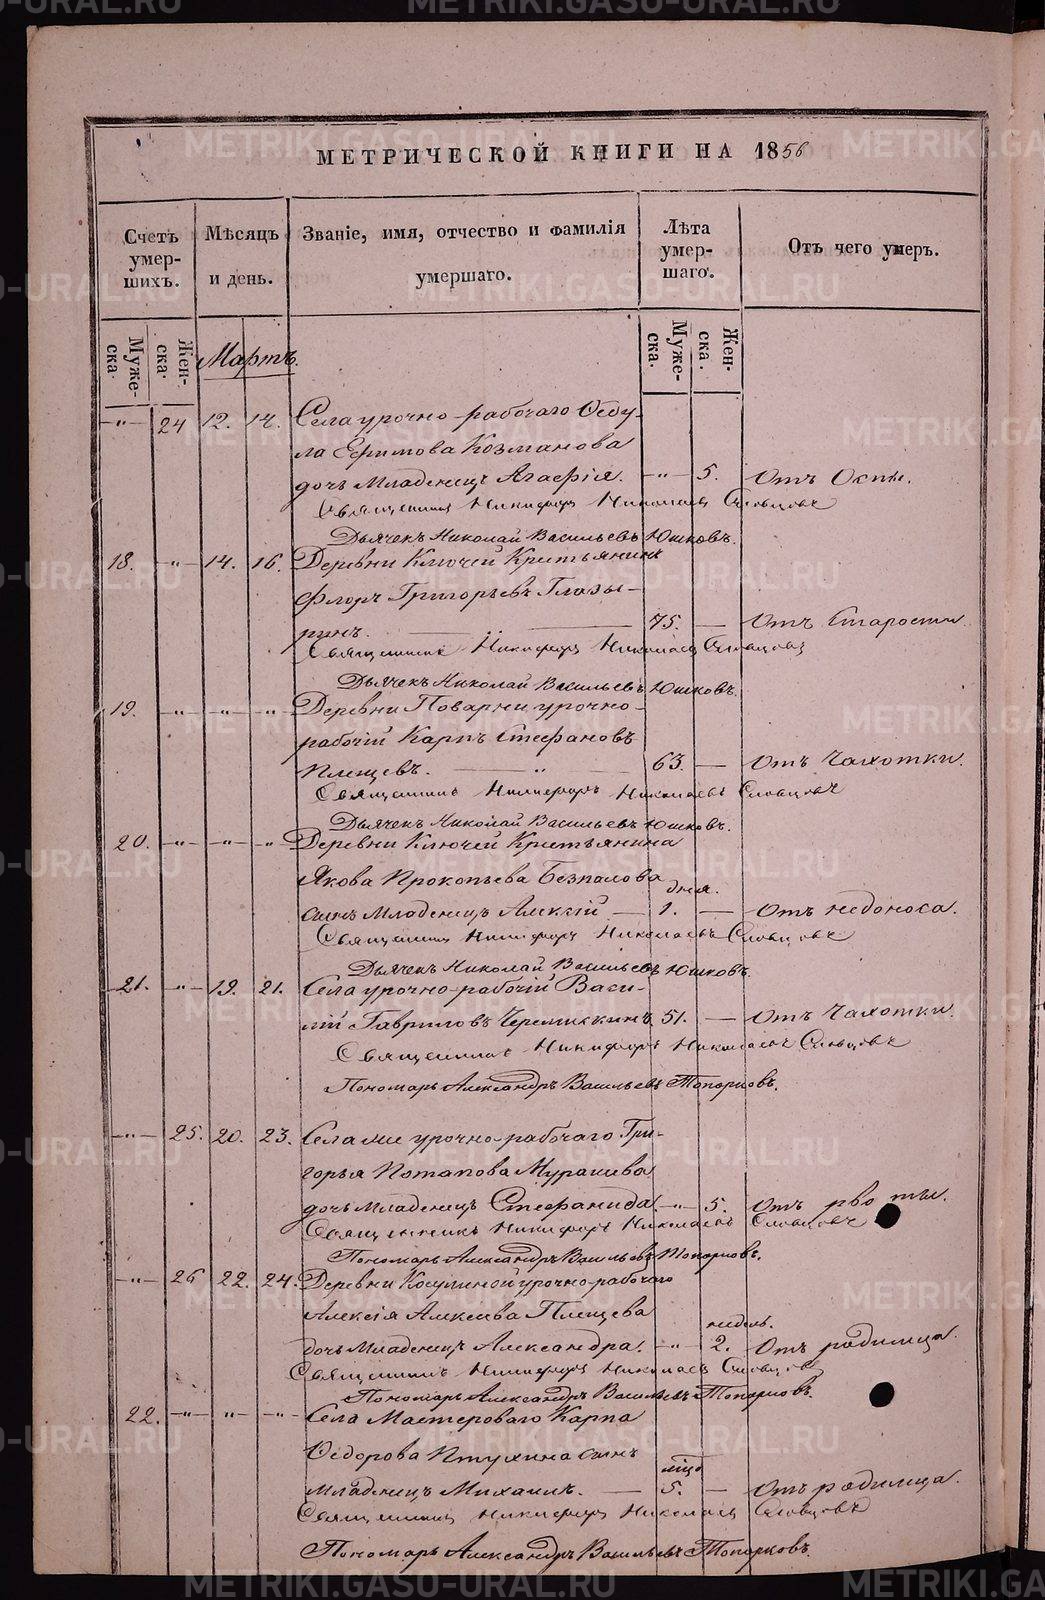 МЕТРИЧЕСКОЙ КНИГИ НА 1856
Счетъ умер- шихъ.
Мѣсяцъ и день.
Званіе, имя, отчество и фамилія умершаго.
Лѣта умер- шаго.
Отъ чего умеръ.
Муже- ска. Жен- ска. Мартъ. Муже- ска. Жен- ска.
-"- 24 12. 14. Села урочно-рабочаго Ѳеду-
ла Ефимова Козманова
дочь младенецъ Агафія. -"- 5. Отъ Оспы.
Священникъ Никифоръ Николаевъ Словцовъ
Дьячекъ Николай Васильевъ Юшковъ.
18. -"- 14. 16. Деревни Ключей Крестьянинъ
Флоръ Григорьевъ Глазы-
ринъ. 75. — Отъ Старости.
Священникъ Никифоръ Николаевъ Словцовъ
Дьячекъ Николай Васильевъ Юшковъ.
19. -"- -"- -"- Деревни Поварни урочно-
рабочій Карпъ Стефановъ
Плещевъ. — " — 63. — Отъ Чахотки.
Священникъ Никифоръ Николаевъ Словцовъ
Дьячекъ Николай Васильевъ Юшковъ.
20. -"- -"- -"- Деревни Ключей Крестьянина
Якова Прокопьева Безпалова дня.
сынъ младенецъ Алексій — 1. — Отъ недоноса.
Священникъ Никифоръ Николаевъ Словцовъ
Дьячекъ Николай Васильевъ Юшковъ.
21. -"- 19. 21. Села урочно-рабочій Васи-
лій Гавриловъ Черемискинъ 51. — Отъ Чахотки.
Священникъ Никифоръ Николаевъ Словцовъ
Пономарь Александръ Васильевъ Топорковъ.
-"- 25. 20. 23. Села урочно-рабочаго Гри-
горья Потапова Мурашева
дочь младенецъ Стефанида. -"- 5. Отъ рвоты.
Священникъ Никифоръ Николаевъ Словцовъ
Пономарь Александръ Васильевъ Топорковъ.
-"- 26 22. 24. Деревни Косулиной урочно-рабочаго
Алексія Алексіева Плещева недѣль.
дочь младенецъ Александра. -"- 2. Отъ родимца.
Священникъ Никифоръ Николаевъ Словцовъ
Пономарь Александръ Васильевъ Топорковъ.
22. -"- -"- -"- Села Мастероваго Карпа
Ѳедорова Птухина сынъ
младенецъ Михаилъ. — 5. — Отъ родимца.
Священникъ Никифоръ Николаевъ Словцовъ
Пономарь Александръ Васильевъ Топорковъ.
METRIKI.GASO-URAL.RU